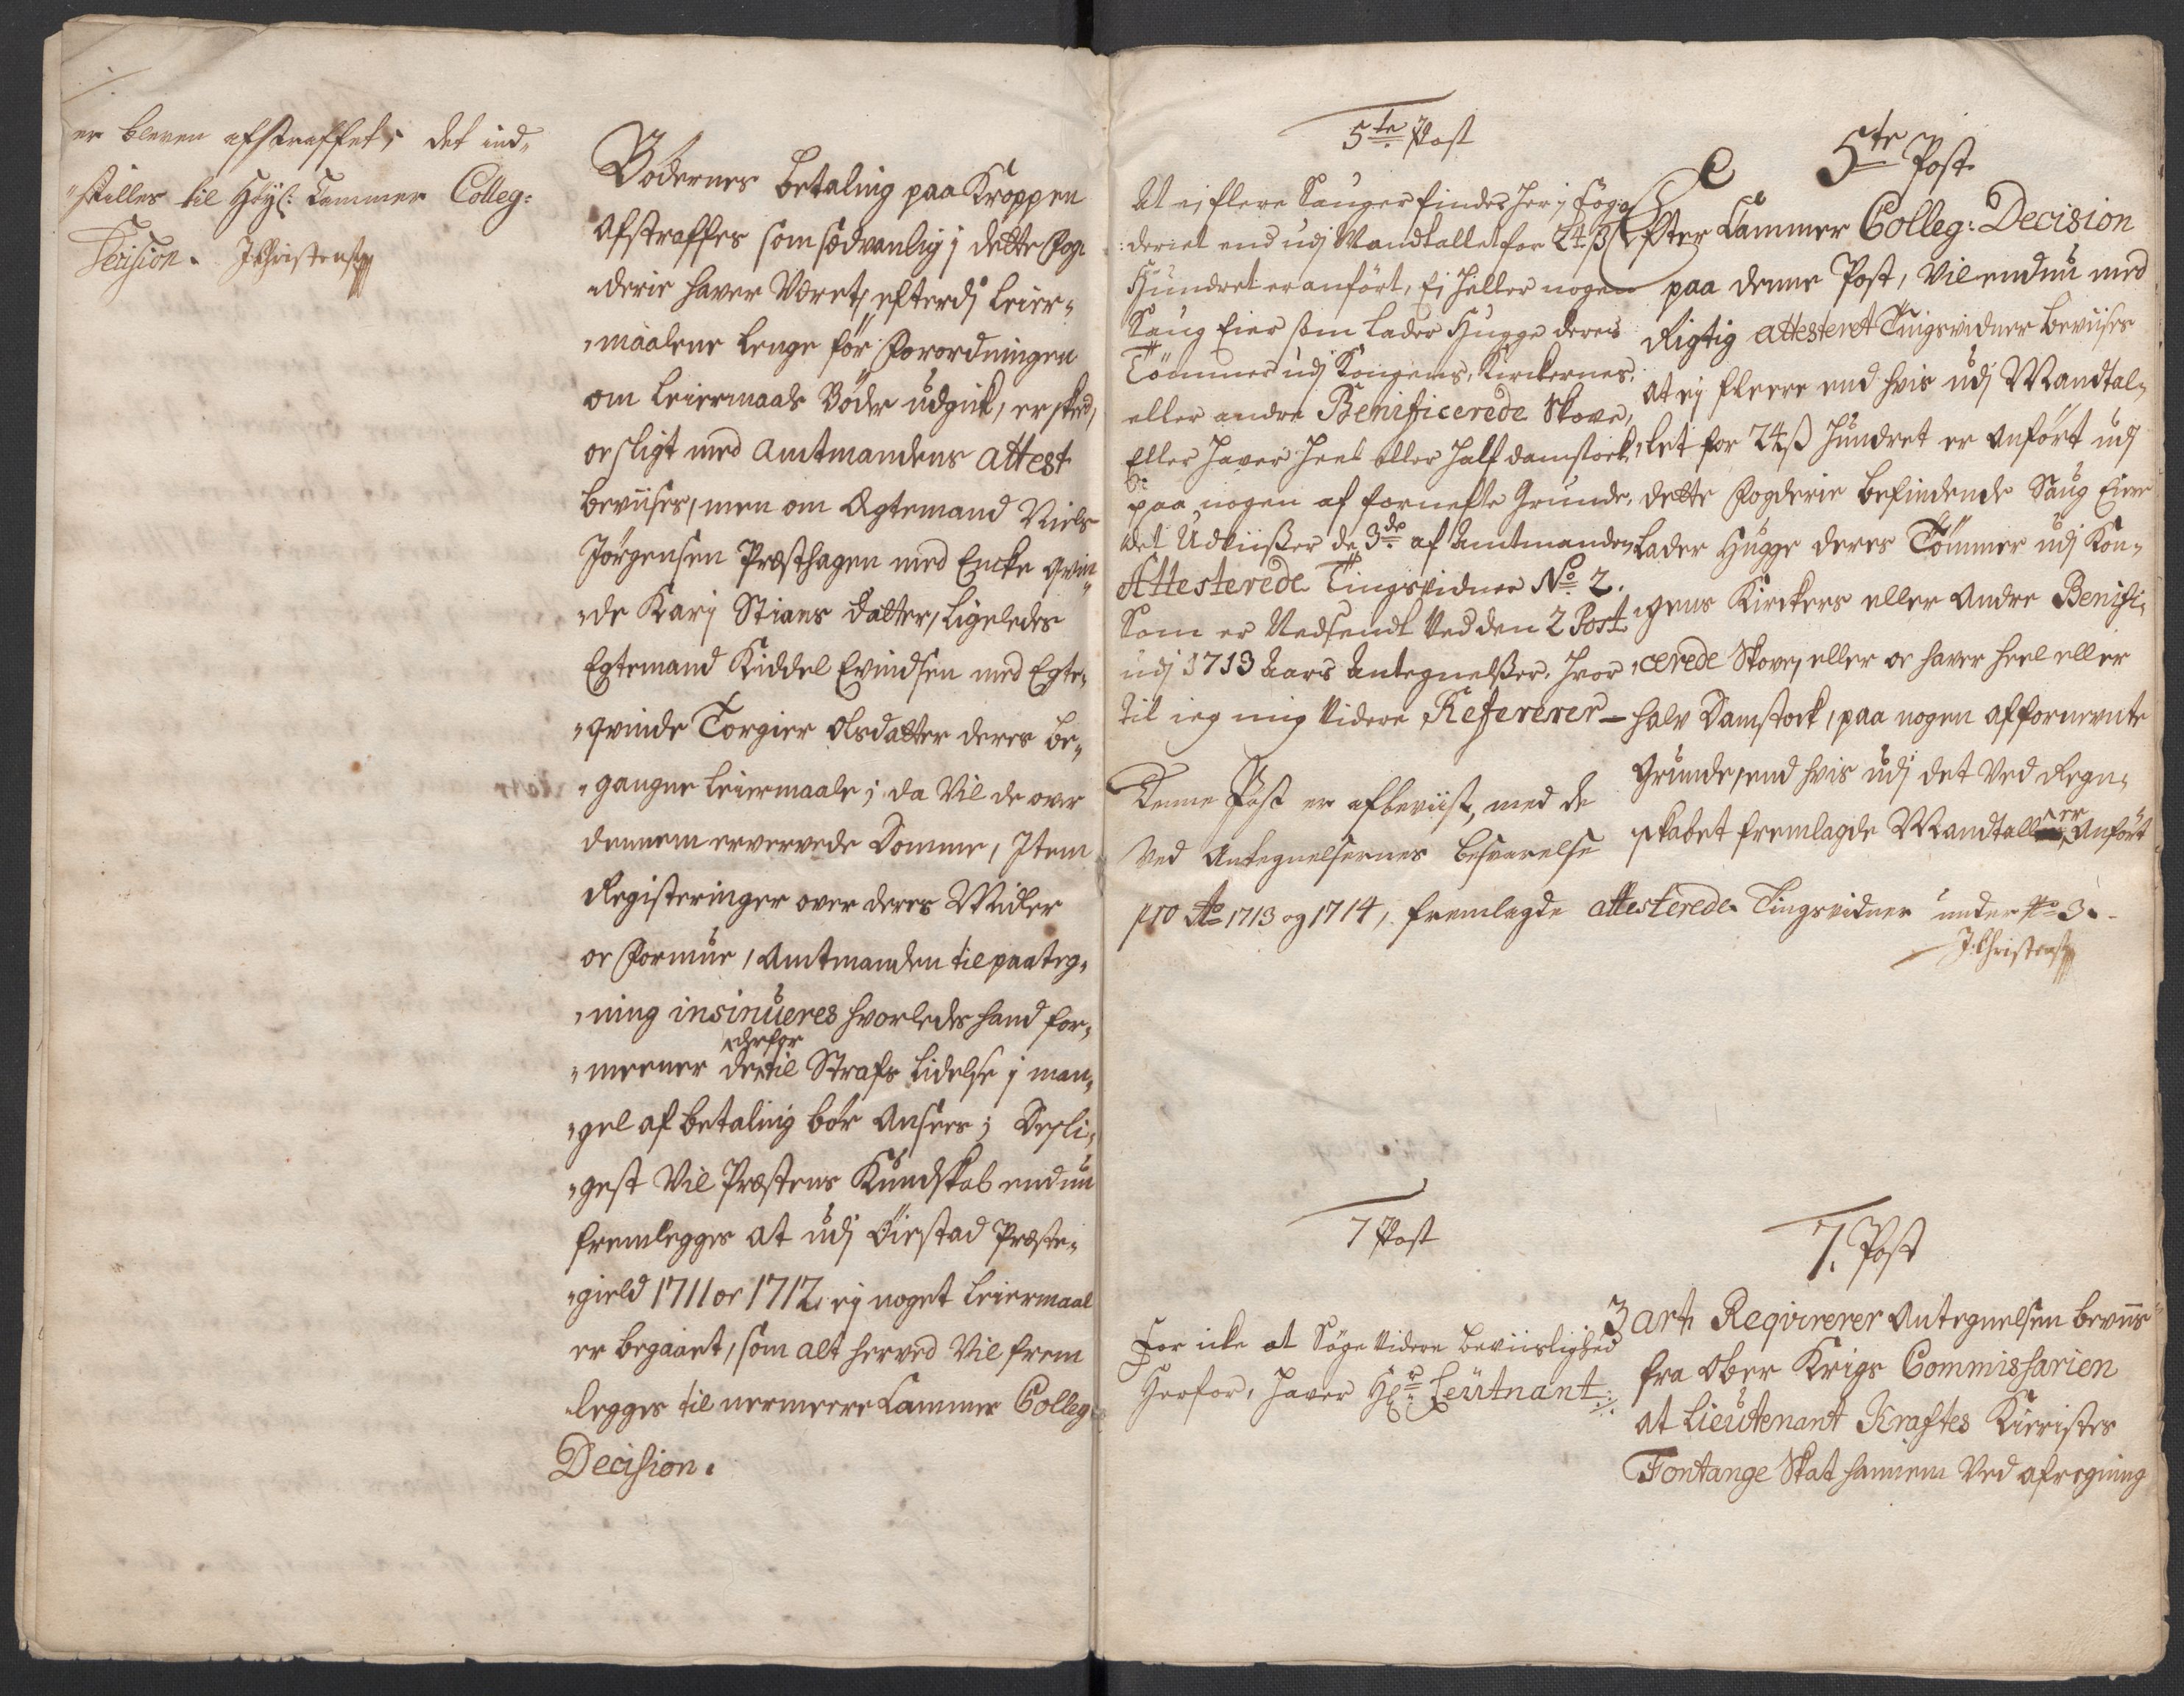 er bleven afstraffet, det ind-
stilles til Höyl: Cammer Colleg:
Decision. J Christens
Bödernes betaling paa Kroppen
afstraffes som sædvanlig i dette Fog-
derie haver Været, efterdj Leier-
maalene lenge för Forordningen
om Leiermaals Böder udgik, er sked,
oc sligt med Amtmandens Attest
beviises, men om Ægtemand Niels
Jörgensen Præsthagen med Encke qvin-
de Karj Stians datter, Ligeledes
Egtemand Kiddel Evindsen med Egte-
qvinde Torgier Olsdatter deres be-
gangne Leiermaale; da Vil de over
dennem ervervede Domme, Item
Registeringer over deres Midler
oc Formue, Amtmanden til paateg-
ning insinueres hvorledes hand for-
meener derfor dertil Strafs Lidelse i man-
gel af betaling bör ansees; Desli-
gest Vil Præstens Kundskab endnu
fremlegges at udj Öiestad Præste-
gield 1711 oc 1712, ej noget Leiermaal
er begaaet, som alt herved Vil frem
legges til nermeere Cammer Colleg:
Decision.
5te Post
At ej flere Sauger findes her i Fog-
deriet end udj Mandtallet for 24 ß
Hundret er anfört, Ej heller nogen
Saug Eier som lader Hugge deres
Tömmer udj Kongens, Kirckernes,
eller andre Benificerede Skove,
Eller haver heel eller half damstock
paa nogen af fornefte Grunde,
det Udviißer de 3de af Amtmanden
Attesterede Tingsvidner No 2.
Som er Nedsendt Ved den 2 Post
udj 1713 Aars Antegnelßer, hvor
til ieg mig Videre Refererer –
Denne Post er afbeviist, med de
Ved Antegnelsernes besvarelse
pro Ao 1713 og 1714, fremlagde attesterede Tingsvidner under No 3.
J. Christens
5te Post
Efter Cammer Colleg: Decision
paa denne Post, Vil endnu med
Rigtig attesteret Tingsvidner beviises
at ej fleere end hvis udj Mandtal-
let for 24 ß hundret er Anfört udj
dette Fogderie befindende Saug Eiere
Lader Hugge deres Tömmer udj Kon-
gens Kirckers eller Andre Benifi-
cerede Skove, eller oc haver heel eller
halv Damstock, paa nogen af fornevnte
Grunde, end hvis udj det Ved Regn-
skabet fremlagde Mandtall er Anfört
7 Post
For icke at Söge Videre beviislighed
Herfor, haver Hr Leütnant
7. Post
3 art Reqvirerer Antegnelsen beviis
fra Ober Krigs Commissarien
at Lieutenant Kraftes Kieristes
Fontange Skat hannem Ved afregning